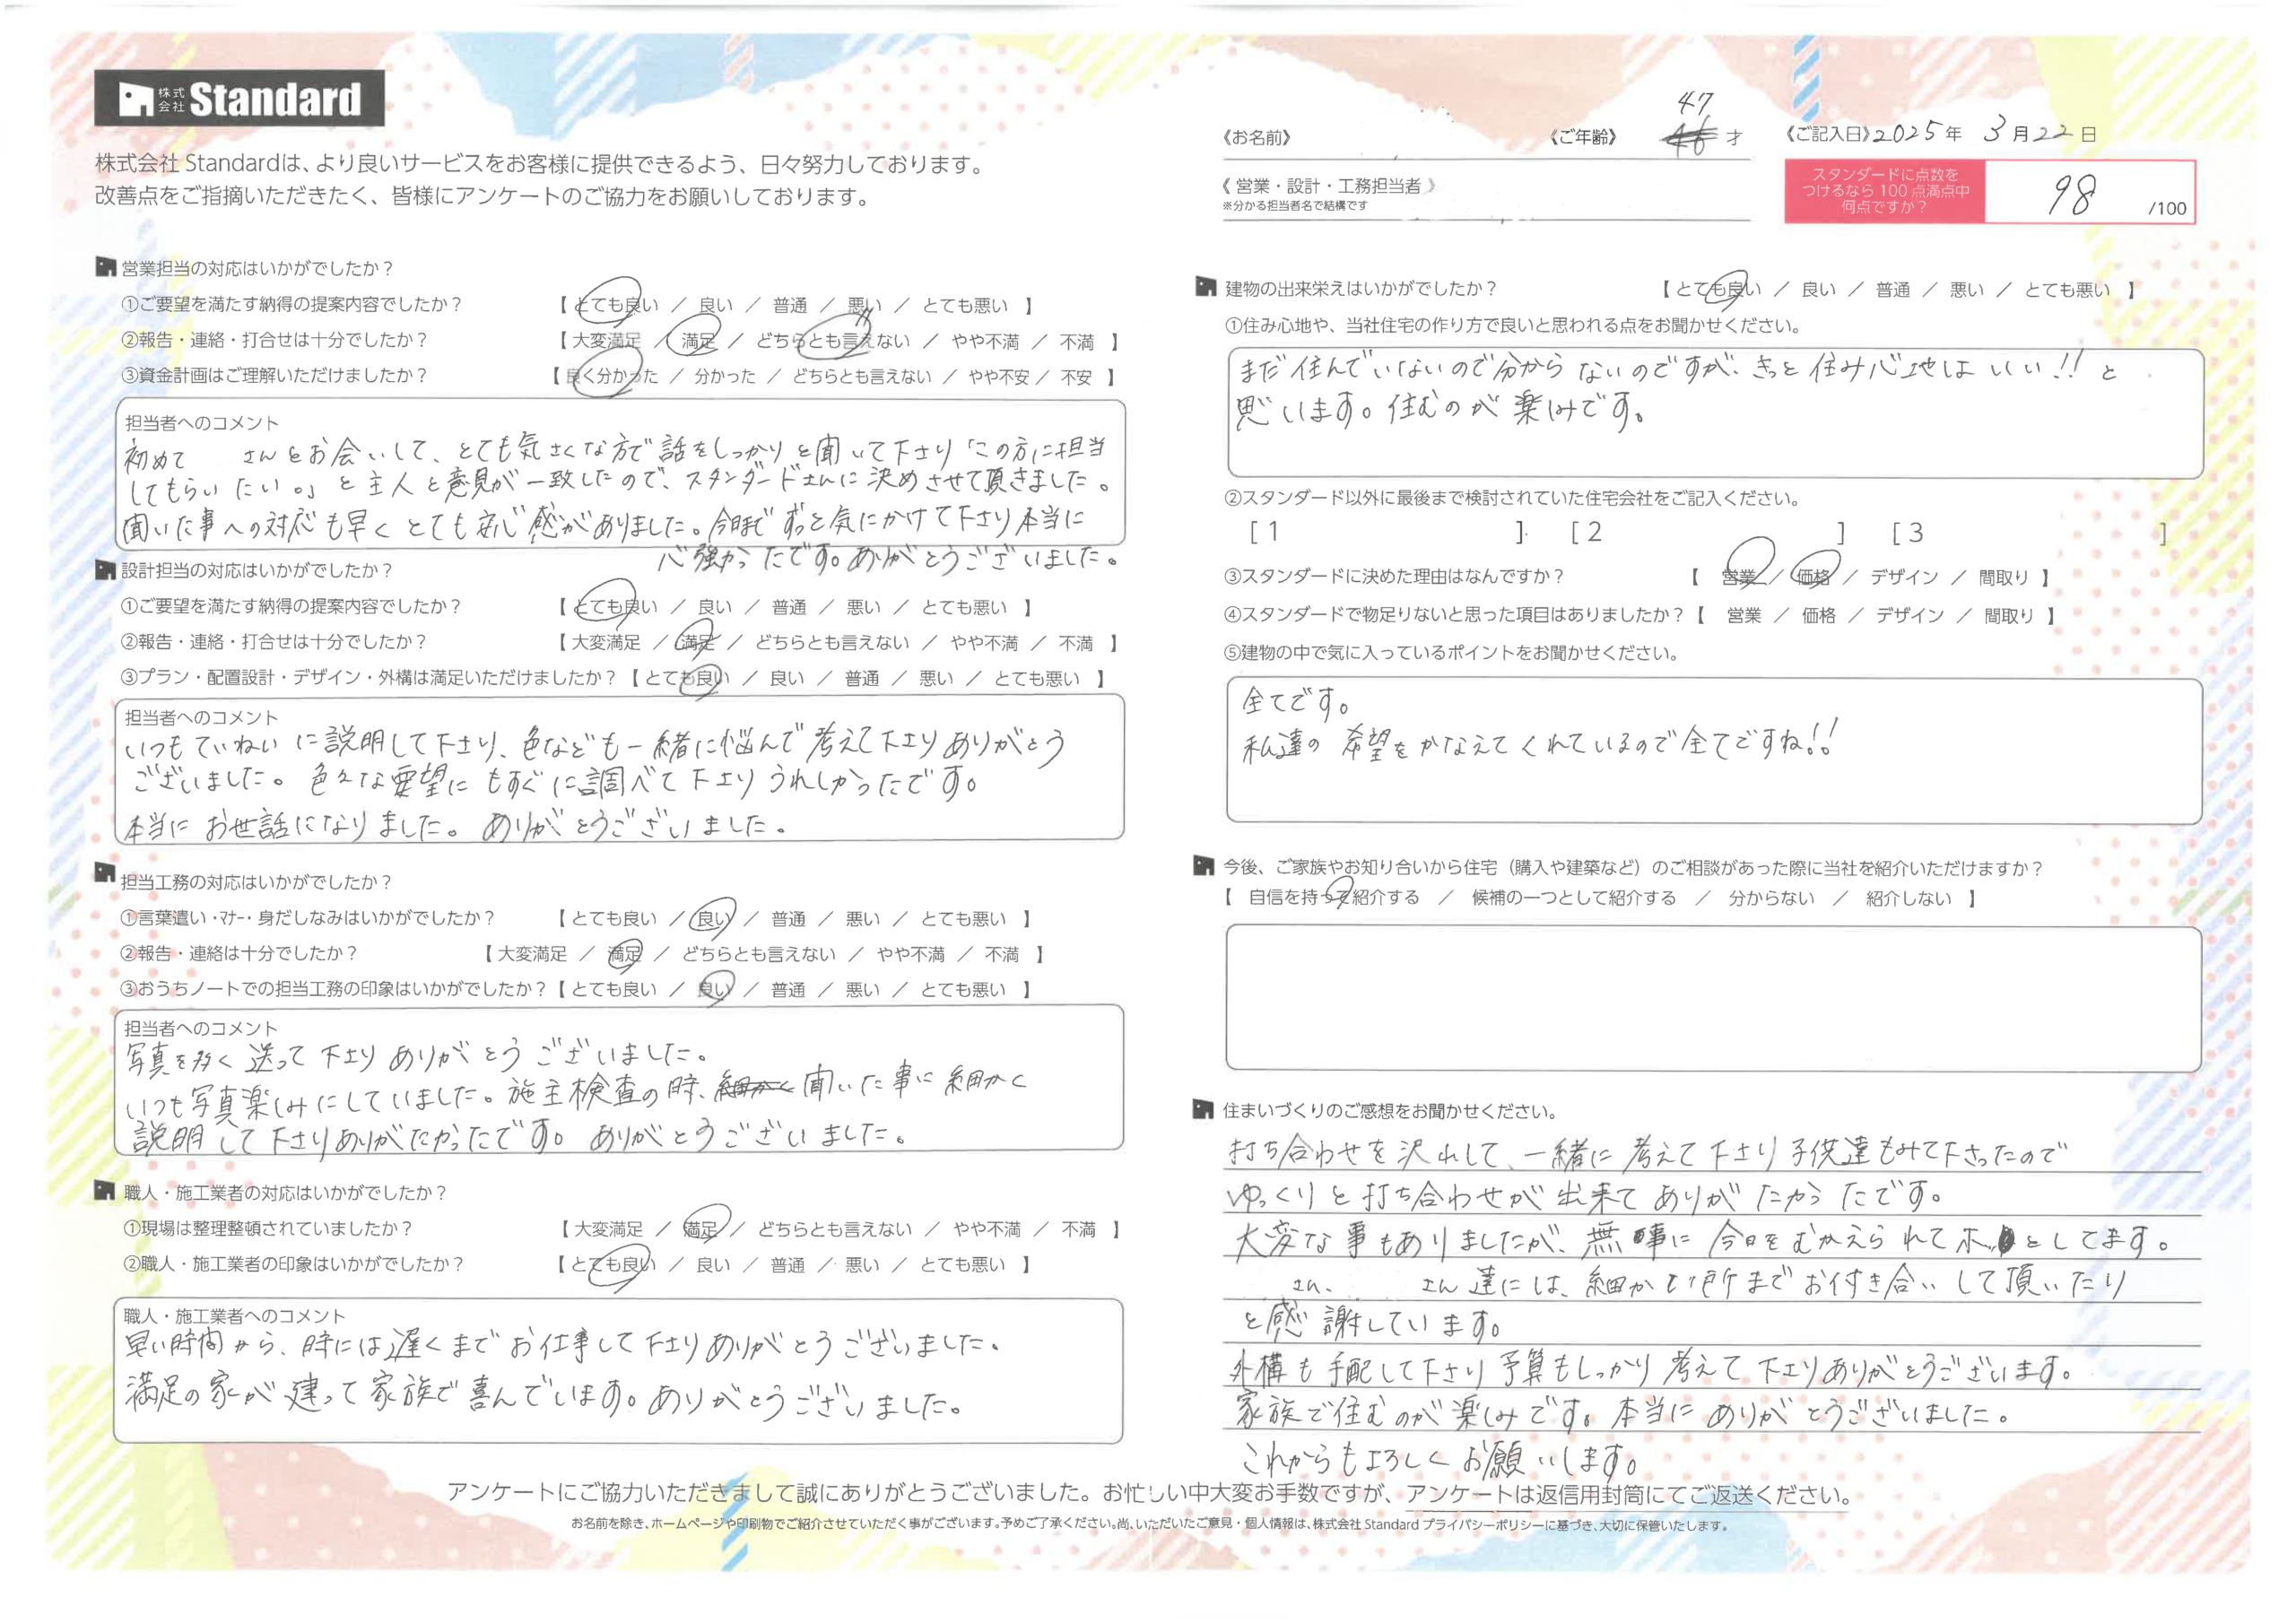 株式会社 Standard
株式会社 Standardは、より良いサービスをお客様に提供できるよう、日々努力しております。
改善点をご指摘いただきたく、皆様にアンケートのご協力をお願いしております。
営業担当の対応はいかがでしたか？
①ご要望を満たす納得の提案内容でしたか？ 【 とても良い ／ 良い ／ 普通 ／ 悪い ／ とても悪い 】
②報告・連絡・打合せは十分でしたか？ 【 大変満足 ／ 満足 ／ どちらとも言えない ／ やや不満 ／ 不満 】
③資金計画はご理解いただけましたか？ 【 良く分かった ／ 分かった ／ どちらとも言えない ／ やや不安 ／ 不安 】
担当者へのコメント
初めて さんとお会いして、とても気さくな方で話をしっかりと聞いて下さり「この方に担当
してもらいたい。」と主人と意見が一致したので、スタンダードさんに決めさせて頂きました。
聞いた事への対応も早くとても安心感がありました。今日まで ずっと気にかけて下さり本当に
心強かったです。ありがとうございました。
設計担当の対応はいかがでしたか？
①ご要望を満たす納得の提案内容でしたか？ 【 とても良い ／ 良い ／ 普通 ／ 悪い ／ とても悪い 】
②報告・連絡・打合せは十分でしたか？ 【 大変満足 ／ 満足 ／ どちらとも言えない ／ やや不満 ／ 不満 】
③プラン・配置設計・デザイン・外構は満足いただけましたか？【 とても良い ／ 良い ／ 普通 ／ 悪い ／ とても悪い 】
担当者へのコメント
いつもていねいに説明して下さり、色なども一緒に悩んで考えて下さりありがとう
ございました。色々な要望にもすぐに調べて下さりうれしかったです。
本当にお世話になりました。ありがとうございました。
担当工務の対応はいかがでしたか？
①言葉遣い・マナー・身だしなみはいかがでしたか？ 【 とても良い ／ 良い ／ 普通 ／ 悪い ／ とても悪い 】
②報告・連絡は十分でしたか？ 【 大変満足 ／ 満足 ／ どちらとも言えない ／ やや不満 ／ 不満 】
③おうちノートでの担当工務の印象はいかがでしたか？【 とても良い ／ 良い ／ 普通 ／ 悪い ／ とても悪い 】
担当者へのコメント
写真を多く送って下さりありがとうございました。
いつも写真楽しみにしていました。施主検査の時、細かく 聞いた事に細かく
説明して下さりありがたかったです。ありがとうございました。
職人・施工業者の対応はいかがでしたか？
①現場は整理整頓されていましたか？ 【 大変満足 ／ 満足 ／ どちらとも言えない ／ やや不満 ／ 不満 】
②職人・施工業者の印象はいかがでしたか？ 【 とても良い ／ 良い ／ 普通 ／ 悪い ／ とても悪い 】
職人・施工業者へのコメント
早い時間から、時には遅くまでお仕事して下さりありがとうございました。
満足の家が建って家族で喜んでいます。ありがとうございました。
47
《お名前》 《ご年齢》 46 才 《ご記入日》2025年 3月22日
《 営業・設計・工務担当者 》
※分かる担当者名で結構です
スタンダードに点数を
つけるなら 100 点満点中
何点ですか？
98 /100
建物の出来栄えはいかがでしたか？ 【 とても良い ／ 良い ／ 普通 ／ 悪い ／ とても悪い 】
①住み心地や、当社住宅の作り方で良いと思われる点をお聞かせください。
まだ住んでいないので分からないのですが、きっと住み心地はいい!!と
思います。住むのが楽しみです。
②スタンダード以外に最後まで検討されていた住宅会社をご記入ください。
[ 1 ] [ 2 ] [ 3 ]
③スタンダードに決めた理由はなんですか？ 【 営業 ／ 価格 ／ デザイン ／ 間取り 】
④スタンダードで物足りないと思った項目はありましたか？【 営業 ／ 価格 ／ デザイン ／ 間取り 】
⑤建物の中で気に入っているポイントをお聞かせください。
全てです。
私達の希望をかなえてくれているので全てですね!!
今後、ご家族やお知り合いから住宅（購入や建築など）のご相談があった際に当社を紹介いただけますか？
【 自信を持って紹介する ／ 候補の一つとして紹介する ／ 分からない ／ 紹介しない 】
住まいづくりのご感想をお聞かせください。
打ち合わせを沢山して、一緒に考えて下さり子供達もみて下さったので
ゆっくりと打ち合わせが出来てありがたかったです。
大変な事もありましたが、無事に今日をむかえられてホッとしてます。
さん、 さん達には、細かい所までお付き合いして頂いたり
と感謝しています。
外構も手配して下さり予算もしっかり考えて下さりありがとうございます。
家族で住むのが楽しみです。本当にありがとうございました。
これからもよろしくお願いします。
アンケートにご協力いただきまして誠にありがとうございました。お忙しい中大変お手数ですが、アンケートは返信用封筒にてご返送ください。
お名前を除き、ホームページや印刷物でご紹介させていただく事がございます。予めご了承ください。尚、いただいたご意見・個人情報は、株式会社 Standard プライバシーポリシーに基づき、大切に保管いたします。